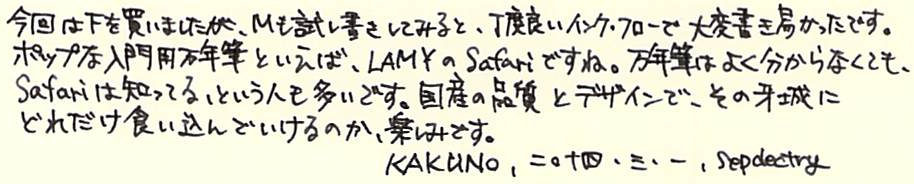 今回はFを買いましたが、Mも試し書きしてみると、丁度良いインク・フローで大変書き易かったです。
ポップな入門用万年筆といえば、LAMYのSafariですね。万年筆はよく分からなくても、
Safariは知ってる、という人も多いです。国産の品質とデザインで、その牙城に
どれだけ食い込んでいけるのか、楽しみです。
KAKUNO, 二〇十四・三・一, Sepdectry